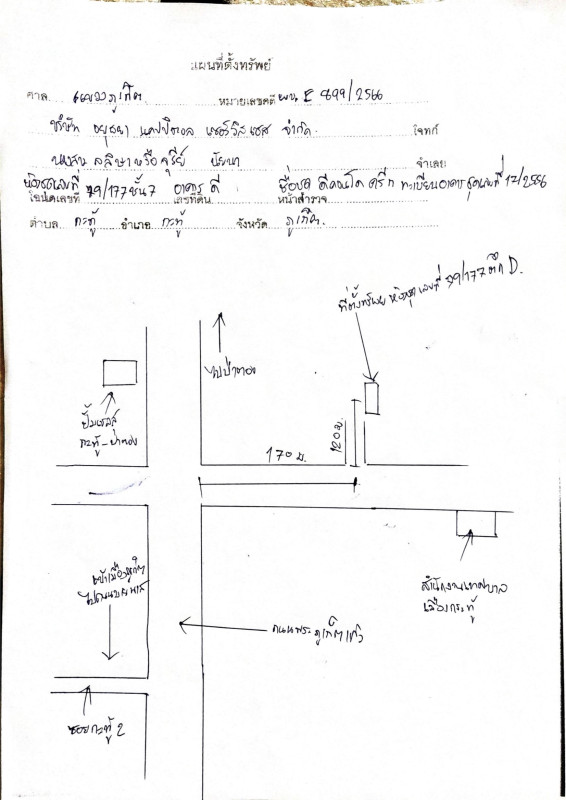 แผนที่ตั้งทรัพย์
ศาล แขวงภูเก็ต หมายเลขคดี ผบ E 899/2566
บริษัท อยุธยา แคปปิตอล เซอร์วิสเซส จำกัด โจทก์
นางสาว ลลิษาหรือจุรีย์ จำเลย
ห้องชุดเลขที่ 79/177 ชั้น 7 อาคาร ดี ชื่อชุด ดีคอนโด ครีก ทะเบียนอาคารชุดเลขที่ 12/2556
โฉนดเลขที่ เลขที่ดิน หน้าสำรวจ
ตำบล กะทู้ อำเภอ กะทู้ จังหวัด ภูเก็ต
ที่ตั้งทรัพย์ ห้องชุดเลขที่ 79/177 ตึก D.
ไปป่าตอง
ปั๊มเชลล์
กะทู้-ป่าตอง
170 ม.
120 ม.
เข้าเมืองภูเก็ต
สำนักงานเทศบาล
เมืองกะทู้
ถนนพระภูเก็ตแก้ว
ซอยกะทู้ 2